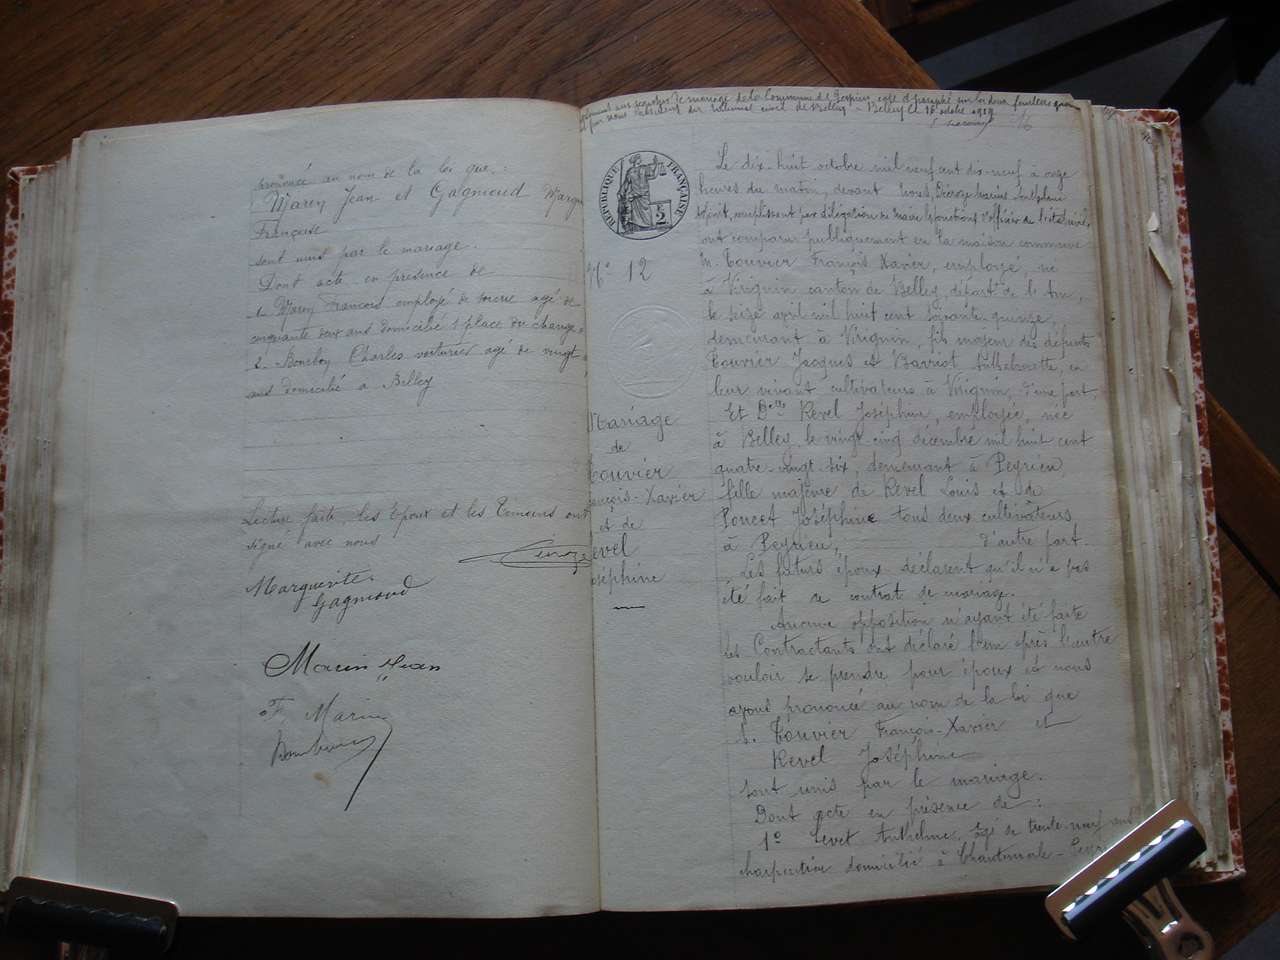 prononcé au nom de la loi que :
Marin Jean et Gagnoud
Française
sont unis par le mariage.
Dont acte en présence de
1. Marin François employé de agé de
cinquante deux ans domicilié 1 place du change
2. Charles voiturier agé de vingt
ans domicilié à Belley
Lecture faite, les Epoux et les Témoins ont
signé avec nous
Marguerite
Gagnoud
Marin Jean
F. Marin
de mariage de la Commune de
Belley le 16 octobre 1919
RÉPUBLIQUE FRANÇAISE
N° 12
Mariage
de
Touvier
François-Xavier
et de
Revel
Joséphine
Le dix huit octobre mil neuf cent dix-neuf à onze
heures du matin, devant nous,
remplissant par délégation du maire les fonctions d'officier de l'état civil,
ont comparu publiquement en la maison commune
M. Touvier François Xavier, employé, né
à Virignin canton de Belley, départ. de l'Ain,
le seize avril mil huit cent soixante-quinze,
demeurant à Virignin, fils majeur des défunts
Touvier Jacques et Barriot en
leur vivant cultivateurs à Virignin, d'une part,
Et Delle Revel Joséphine, employée, née
à Belley, le vingt-cinq décembre mil huit cent
quatre-vingt-six, demeurant à Peyrieu
fille majeure de Revel Louis et de
Poncet Joséphine tous deux cultivateurs
à Peyrieu, d'autre part.
Les futurs époux déclarent qu'il n'a pas
été fait de contrat de mariage.
Aucune opposition n'ayant été faite
les Contractants ont déclaré l'un après l'autre
vouloir se prendre pour époux et nous
avons prononcé au nom de la loi que
S. Touvier François-Xavier et
Revel Joséphine
sont unis par le mariage.
Dont acte en présence de :
1° Levet Anthelme, agé de trente-neuf ans
charpentier domicilié à